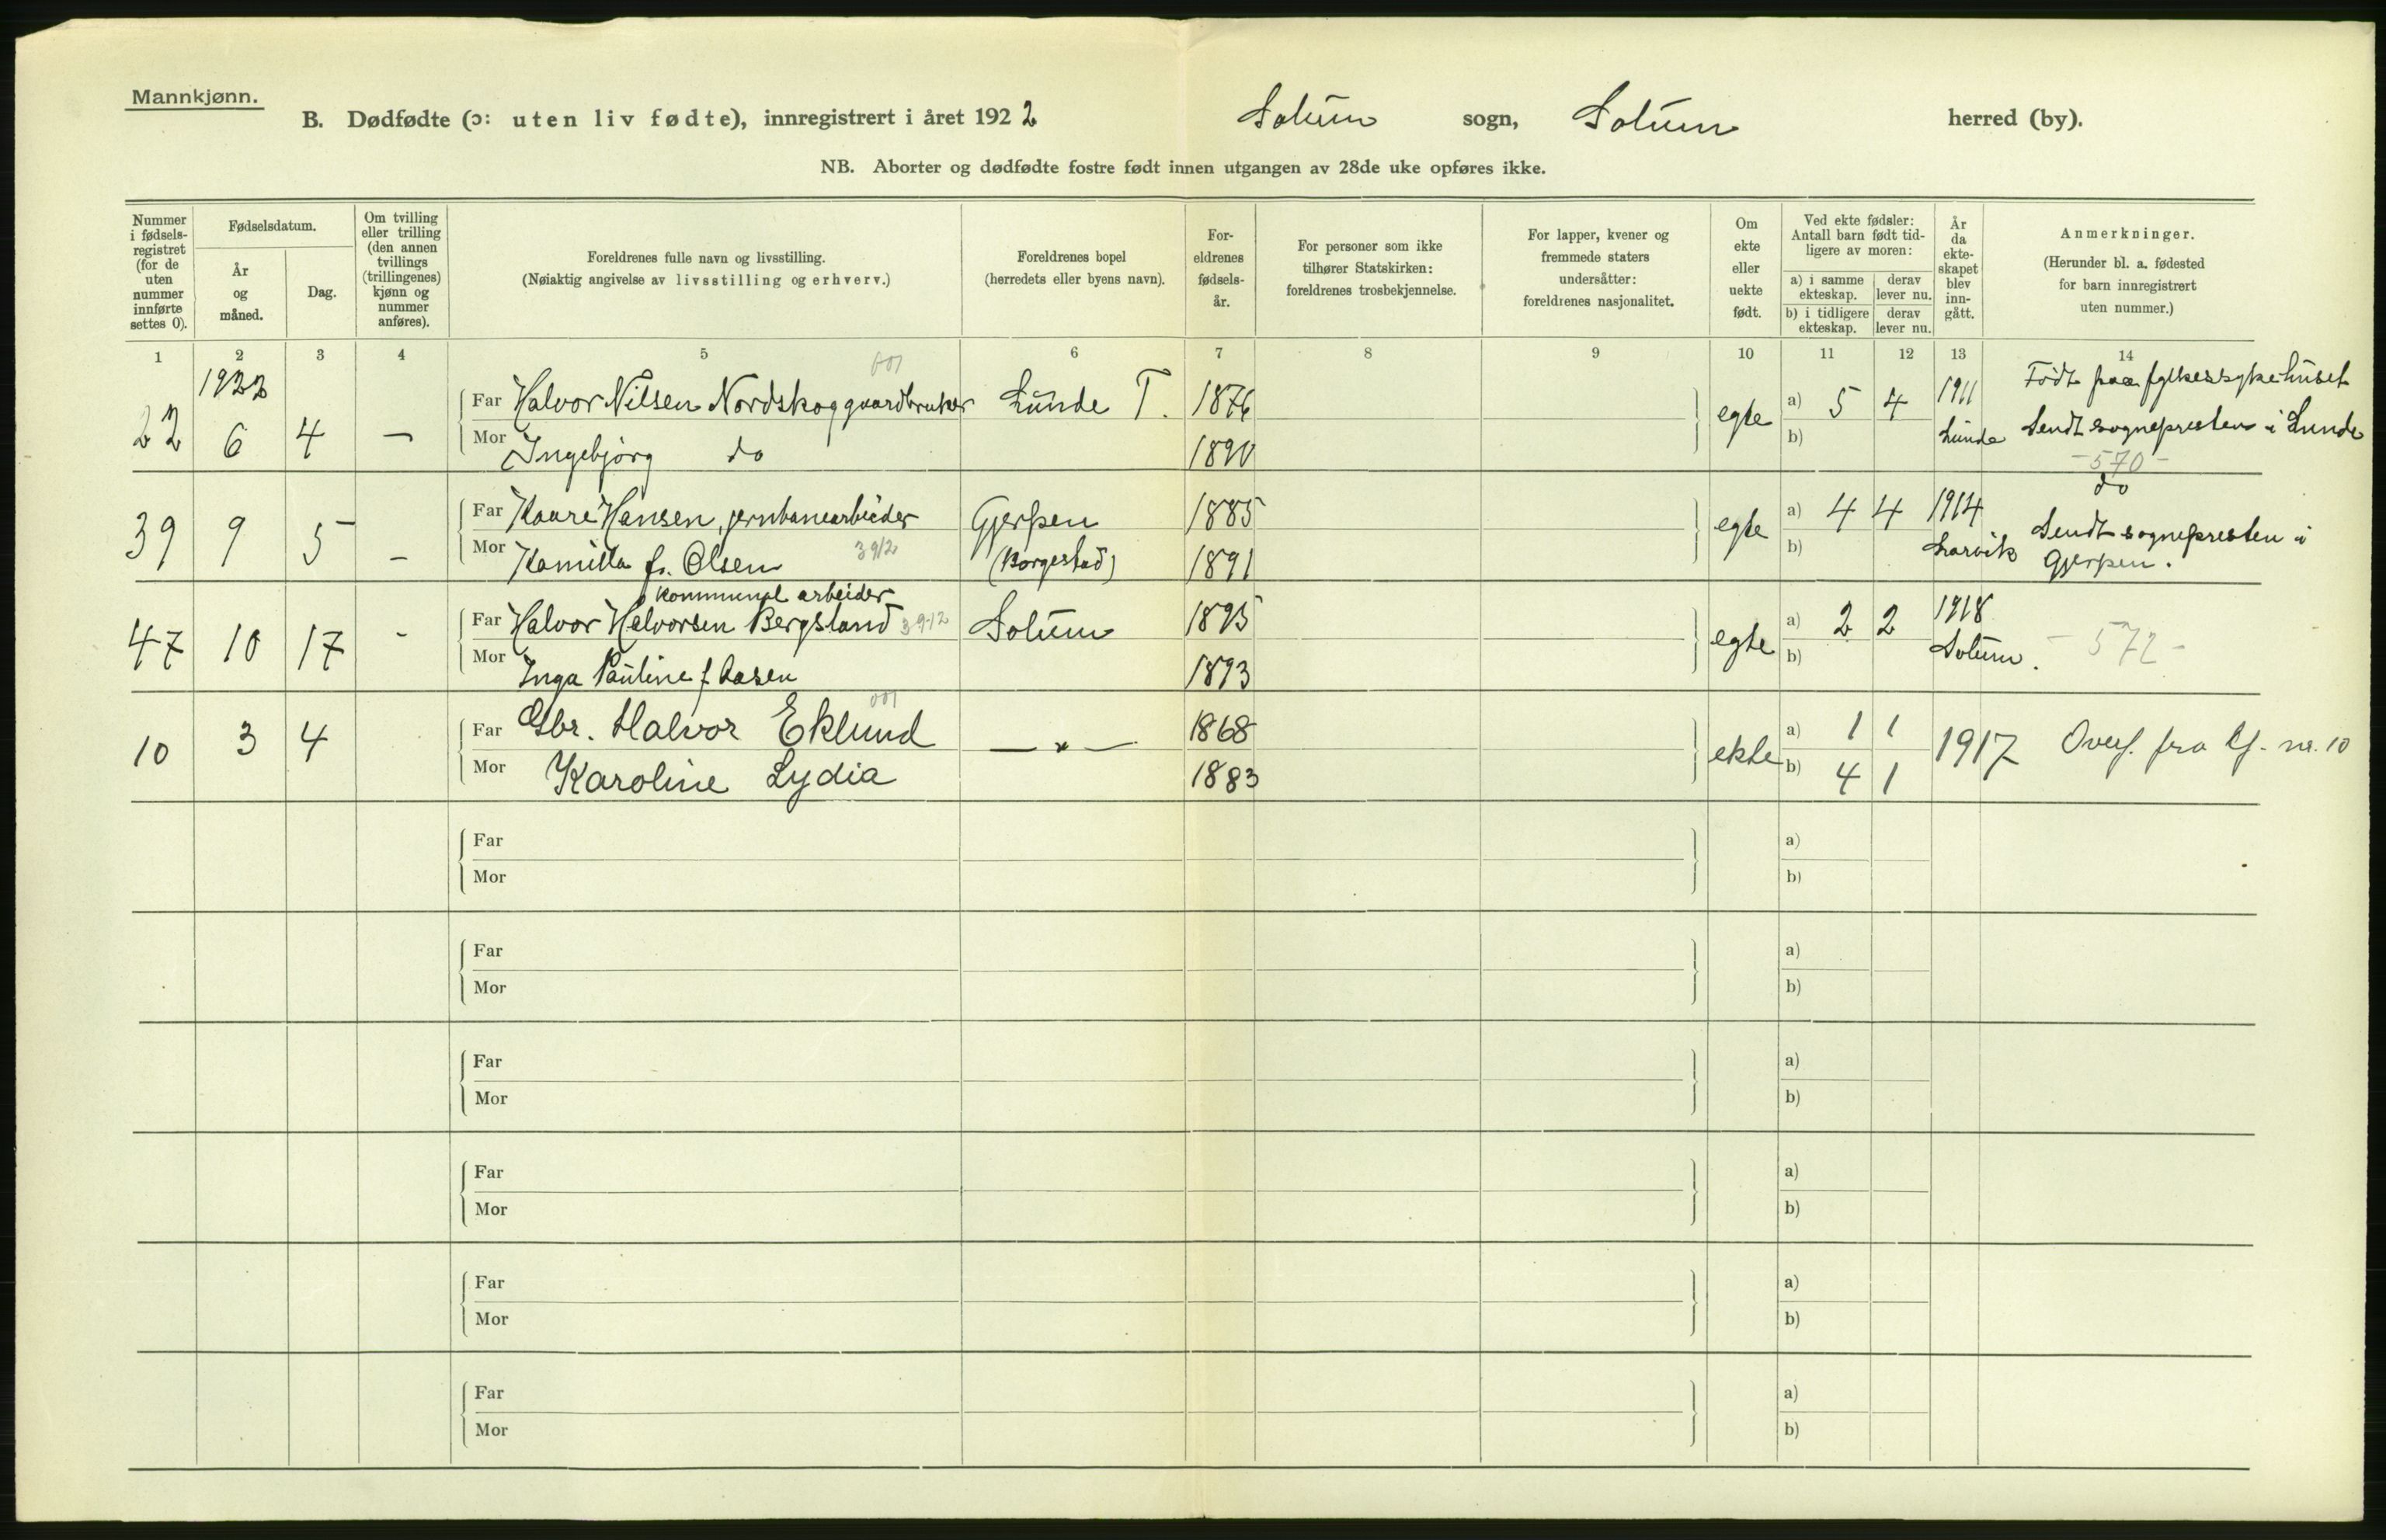 Mannkjønn.
B. Dødfødte (ɔ: uten liv fødte), innregistrert i året 1922 Solum sogn, Solum herred (by).
NB. Aborter og dødfødte fostre født innen utgangen av 28de uke opføres ikke.
Nummer i fødsels-registret (for de uten nummer innførte settes 0).
Fødselsdatum.
År og måned.
Dag.
Om tvilling eller trilling (den annen tvillings (trillingenes) kjønn og nummer anføres).
Foreldrenes fulle navn og livsstilling.
(Nøiaktig angivelse av livsstilling og erhverv.)
Foreldrenes bopel
(herredets eller byens navn).
For-eldrenes fødsels-år.
For personer som ikke tilhører Statskirken: foreldrenes trosbekjennelse.
For lapper, kvener og fremmede staters undersåtter: foreldrenes nasjonalitet.
Om ekte eller uekte født.
Ved ekte fødsler: Antall barn født tid-ligere av moren:
a) i samme ekteskap. derav lever nu.
b) i tidligere ekteskap. derav lever nu.
År da ekte-skapet blev inn-gått.
Anmerkninger.
(Herunder bl. a. fødested for barn innregistrert uten nummer.)
1 2 3 4 5 6 7 8 9 10 11 12 13 14
1922
22 6 4 —
Far Halvor Nilsen Nordskog gaardbruker Lunde T. 1876
Mor Ingebjørg do 1890
egte a) 5 4 b) 1911 Lunde
Født paa fylkessykehuset
Sendt sognepresten i Lunde
-570-
39 9 5 –
Far Kaare Hansen, jernbanearbeider Gjerpen 1885
Mor Kamilla f. Olsen 39/2 (Borgestad) 1891
egte a) 4 4 b) 1914 Larvik
do
Sendt sognepresten i
Gjerpen.
47 10 17 -
kommunal arbeider
Far Halvor Halvorsen Bergsland 39-12 Solum 1895
Mor Inga Pauline f. Aasen 1893
egte a) 2 2 b) 1918 Solum.
- 572 -
10 3 4
Far Gbr. Halvor Eklund — " — 1868
Mor Karoline Lydia 1883
ekte a) 1 1 b) 4 1 1917
Overf. fra lf. nr. 10
Far a)
Mor b)
Far a)
Mor b)
Far a)
Mor b)
Far a)
Mor b)
Far a)
Mor b)
Far a)
Mor b)